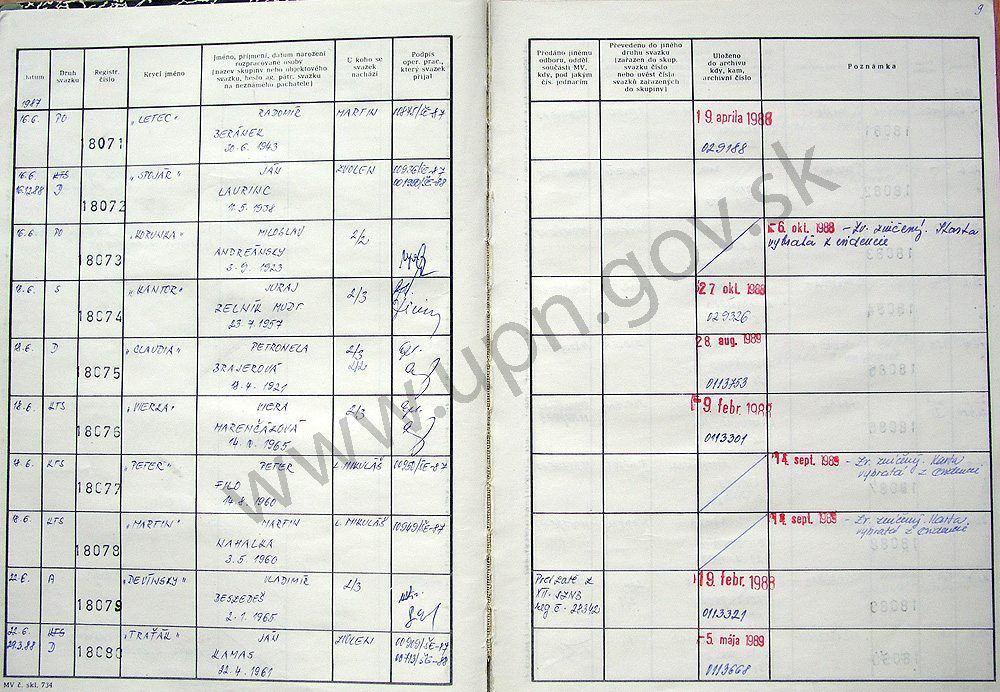 9
Datum
Druh svazku
Registr. číslo
Krycí jméno
Jméno, příjmení, datum narození
rozpracované osoby
(název skupiny nebo objektového
svazku, heslo ag. pátr. svazku
na neznámého pachatele)
U koho se
svazek
nachází
Podpis
oper. prac.,
který svazek
přijal
Předáno jinému
odboru, odděl.
součásti MV,
kdy, pod jakým
čís. jednacím
Převedeno do jiného
druhu svazku
(zařazen do skup.
svazku číslo
nebo uvést čísla
svazků zařazených
do skupiny)
Uloženo
do archivu
kdy, kam,
archivní číslo
Poznámka
1987
16.6. PO 18071 "LETEC" RADOMÍR MARTIN
BERÁNEK
30.6.1943
19 apríla 1988
029188
16.6. KTS 18072 "SPOJÁR" JÁN ZVOLEN
16.12.88 D LAURINC
1.5.1938
16.6. PO 18073 "KORUNKA" MILOSLAV 2/2
ANDREÁNSKY
5.9.1923
-6. okt. 1988 - Zv. zničený. Karta
vybratá z evidencie
18.6. S 18074 "KANTOR" JURAJ 2/3
ZELNÍK MUDr
23.7.1957
27 okt. 1988
029326
18.6. D 18075 "CLAUDIA" PETRONELA 2/3
BRAJEROVÁ 2/2
18.4.1921
28. aug. 1989
0113753
18.6. KTS 18076 "VIERKA" VIERA 2/3
MARENČÁKOVÁ
1965
-9. febr. 1988
0113301
18.6. KTS 18077 "PETER" PETER L. MIKULÁŠ
FILO
14.8.1960
14. sept. 1989 - Zv. zničený. Karta
vybratá z evidencie
18.6. KTS 18078 "MARTIN" MARTIN L. MIKULÁŠ
NAHALKA
3.5.1960
14. sept. 1989 - Zv. zničený. Karta
vybratá z evidencie
22.6. A 18079 "DEVÍNSKY" VLADIMÍR 2/3
BESZEDEŠ
2.1.1965
Prevzaté z
19. febr. 1988
0113321
22.6. KTS 18080 "TRAŤÁR" JÁN ZVOLEN
29.3.88 D KAMAS
22.4.1961
-5. mája 1989
0113668
MV č. skl. 734
www.upn.gov.sk